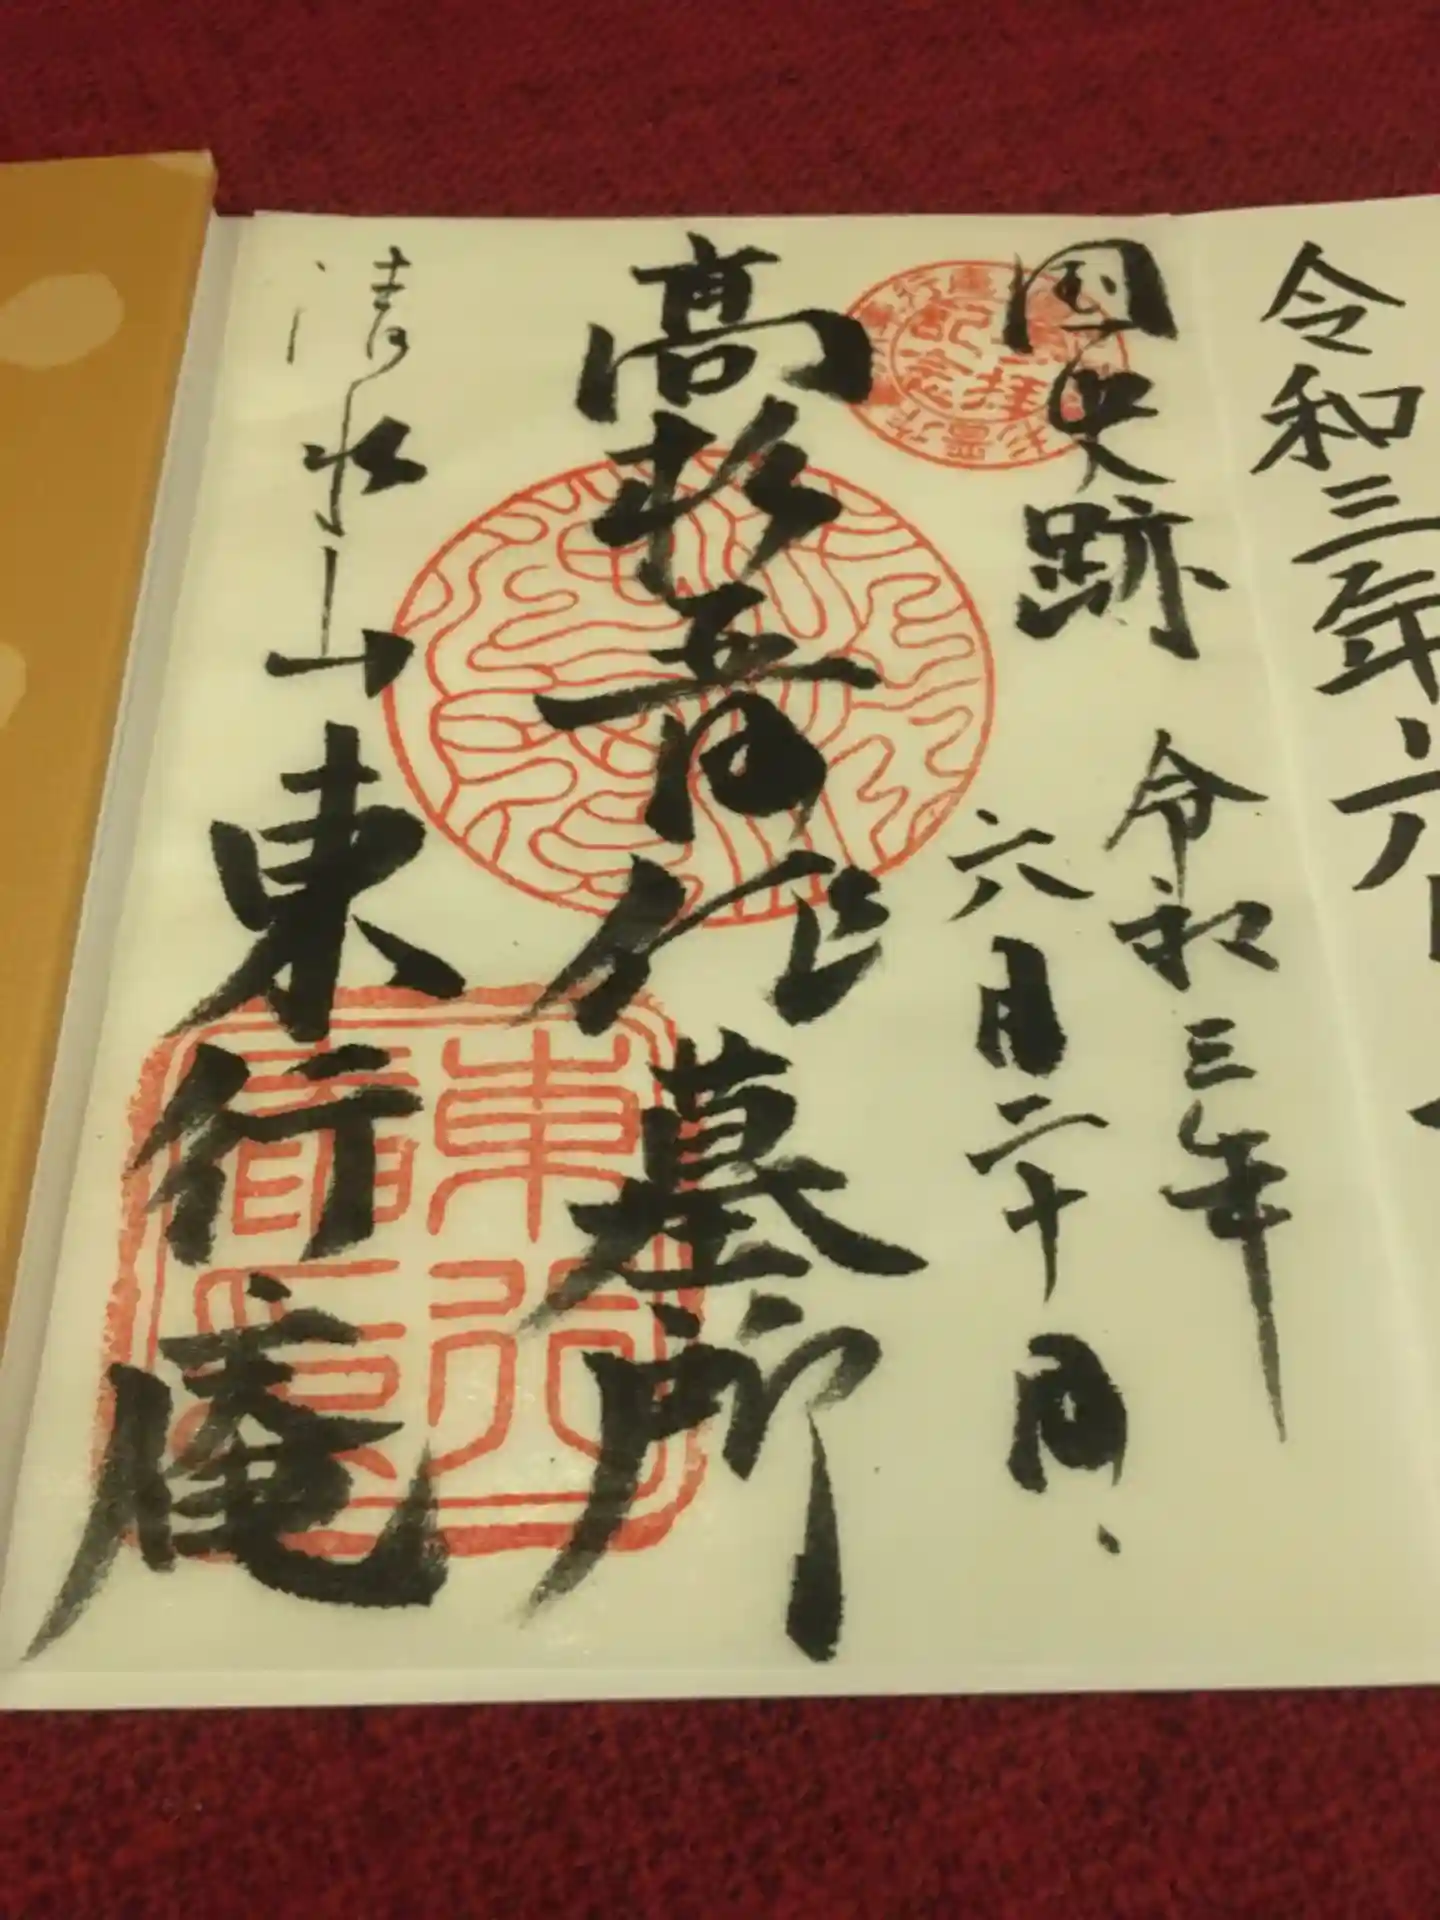 令和三年六
国史跡
令和三年
六月二十日
高杉晋作墓所
清水山 東行庵
参拝
記念
東行
庵印